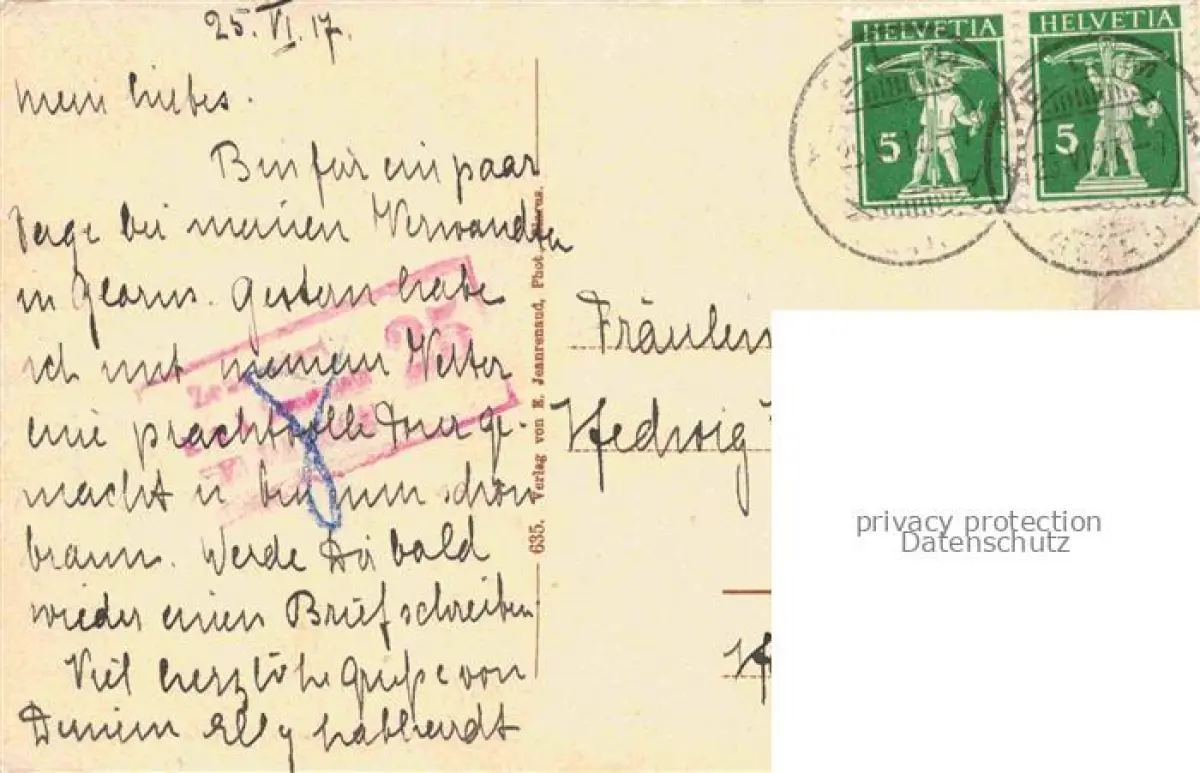 25.VI.17.
Mein liebes.
Bin für ein paar
Tage bei meinen Verwandten
in Glarus. Gestern habe
ich mit meinem Vetter
eine prachtvolle Tour ge-
macht u bin nun schön
braun. Werde Dir bald
wieder einen Brief schreiben
Viel herzliche Grüße von
Deinem Elly
635. Verlag von E. Jeanrenaud, Phot. Glarus.
HELVETIA
5
HELVETIA
5
25
Fräulein
Hedwig
privacy protection
Datenschutz